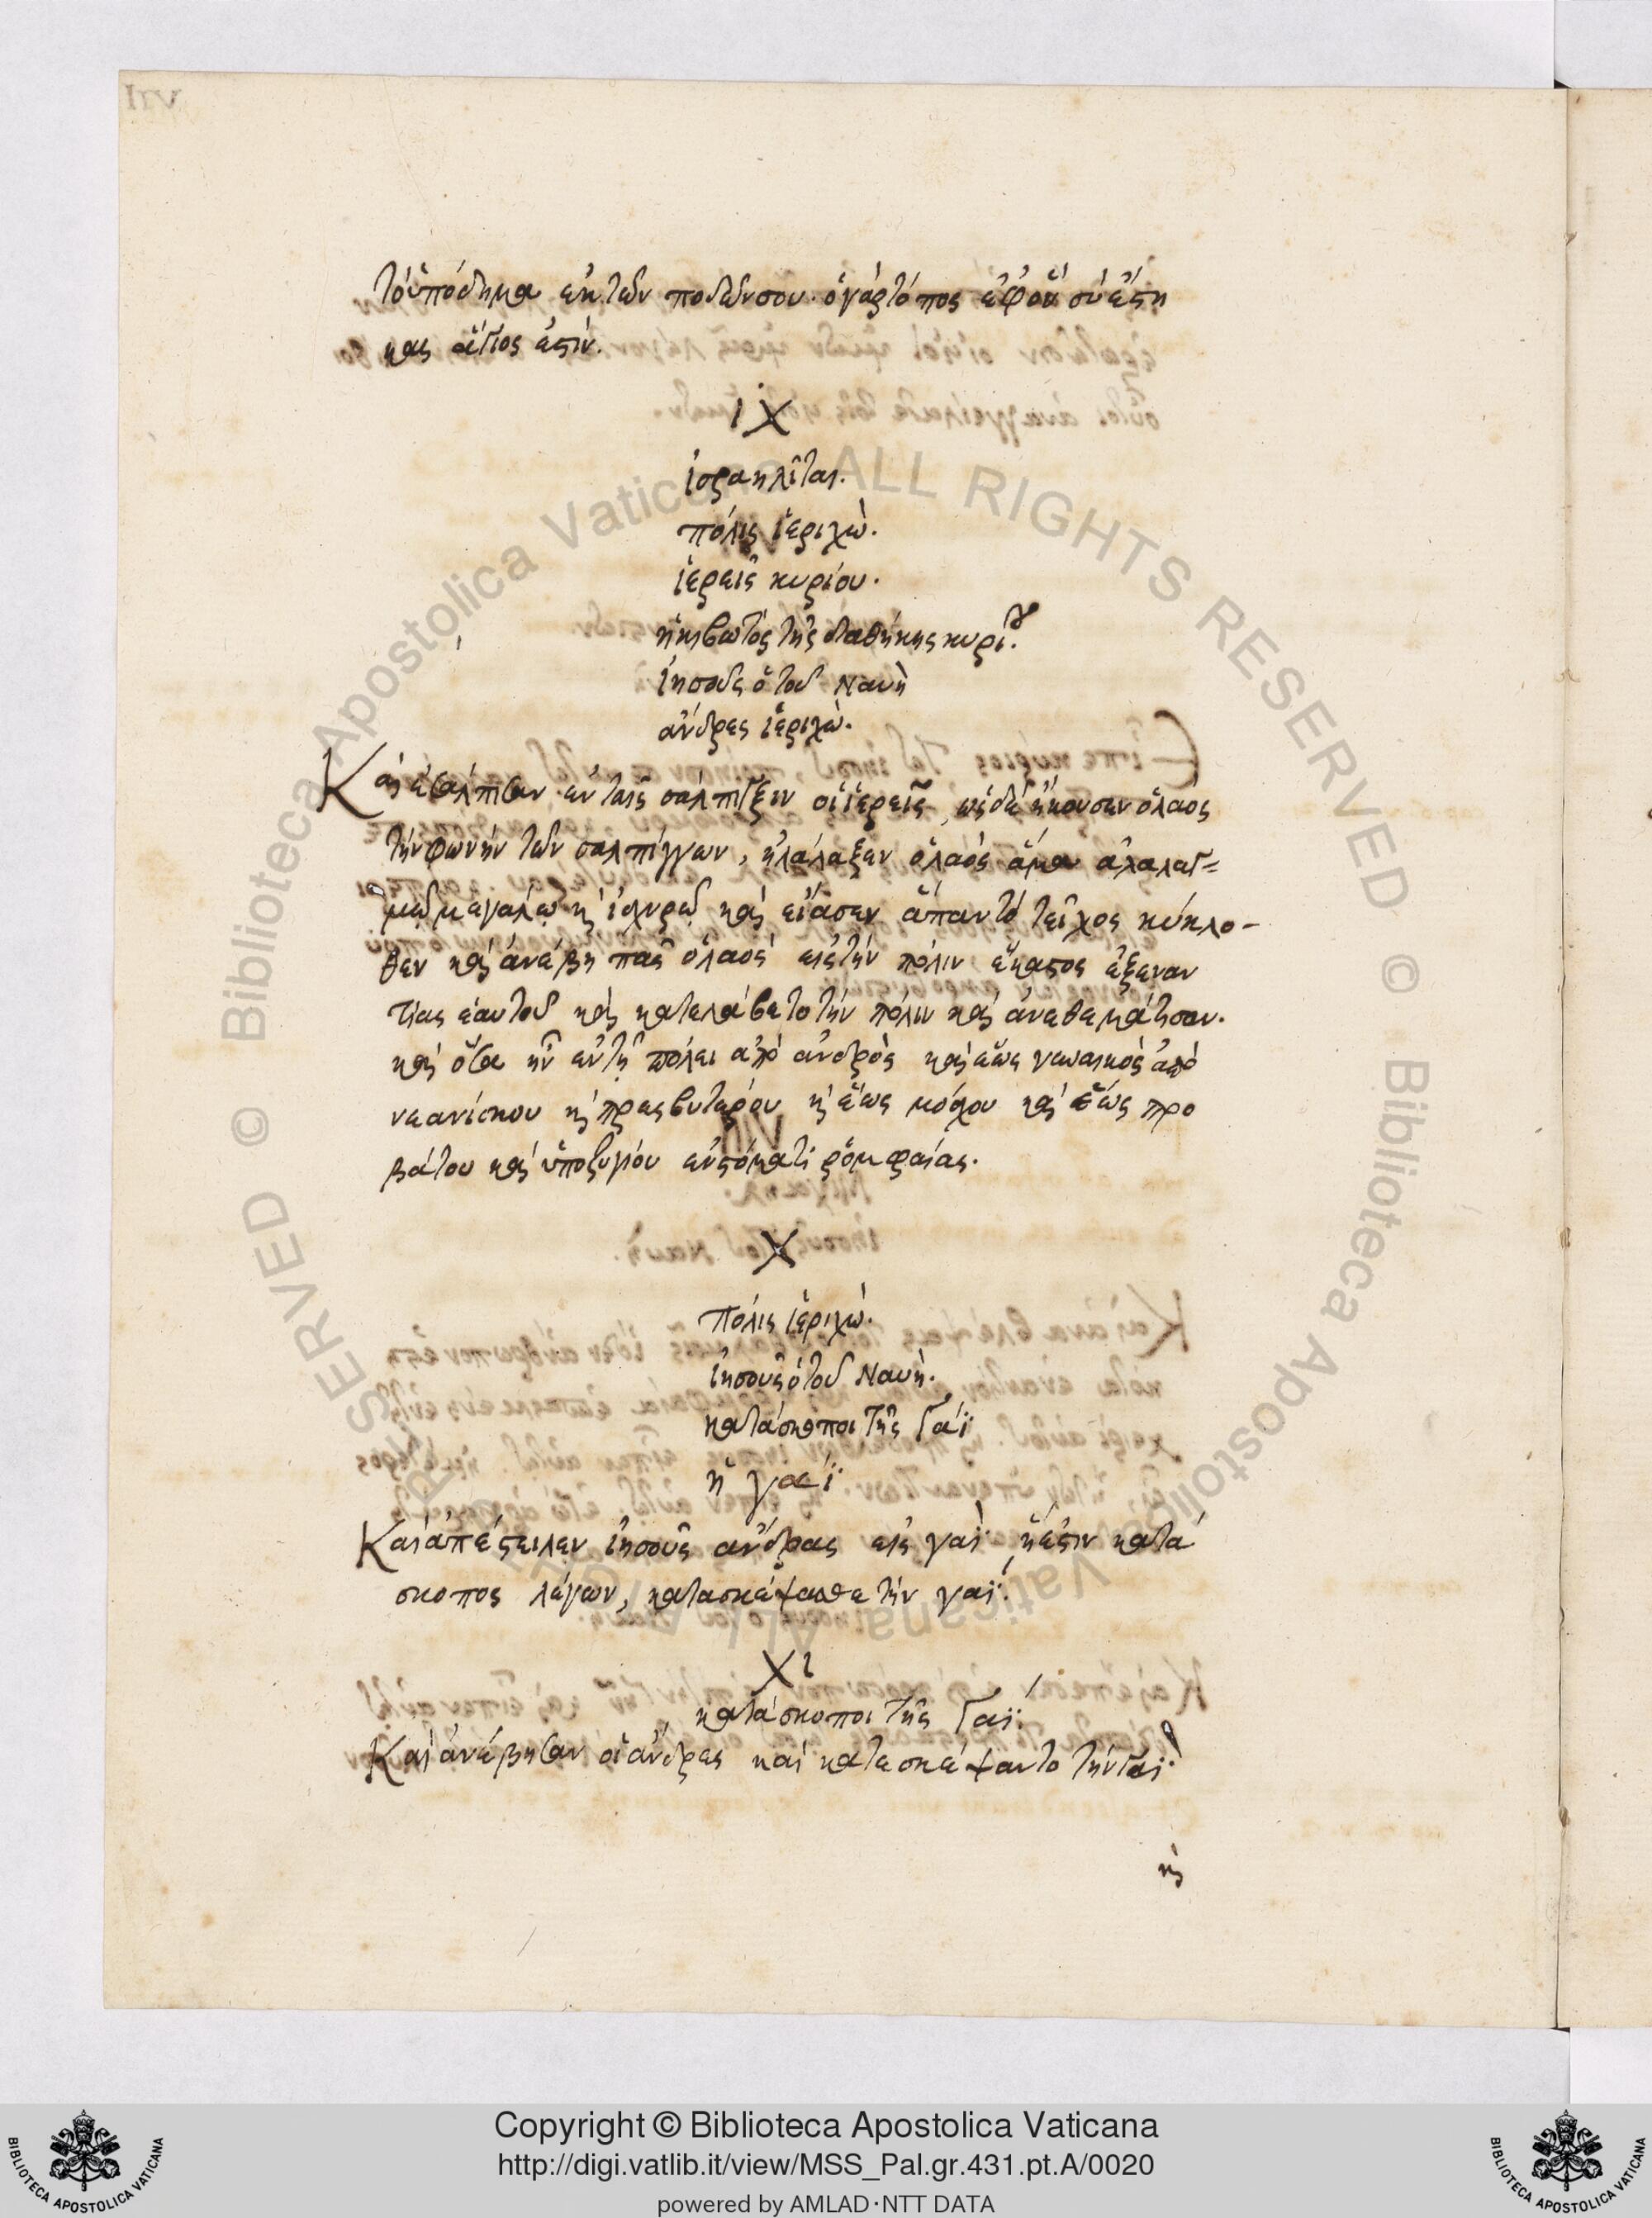 IIV
τὸ ὑπόδημα ἐκ τῶν ποδῶν σου. ὁ γὰρ τόπος ἐφ' οὗ σὺ ἔστη
κας ἅγιος ἐστίν.
IX
ἰσραηλῖται.
πόλις ἱεριχὼ.
ἱερεῖς κυρίου.
ἡ κιβωτὸς τῆς διαθήκης κυρίου.
ἰησοῦς ὁ τοῦ Ναυὴ
ἄνδρες ἱεριχὼ.
Καὶ ἐσάλπισαν ἐν ταῖς σάλπιγξιν οἱ ἱερεῖς, ὡς δὲ ἤκουσεν ὁ λαὸς
τὴν φωνὴν τῶν σαλπίγγων, ἠλάλαξεν ὁ λαὸς ἅμα ἀλαλαγ=
μῷ μεγάλῳ κὶ ἰσχυρῷ καὶ ἔπεσεν ἅπαν τὸ τεῖχος κύκλο-
θεν καὶ ἀνέβη πᾶς ὁ λαὸς εἰς τὴν πόλιν ἕκαστος ἐξεναν
τίας ἑαυτοῦ καὶ κατελάβετο τὴν πόλιν καὶ ἀνεθεμάτισαν.
καὶ ὅσα ἦν ἐν τῇ πόλει ἀπὸ ἀνδρὸς καὶ ἕως γυναικὸς ἀπὸ
νεανίσκου κὶ πρεσβυτέρου κὶ ἕως μόσχου καὶ ἕως προ
βάτου καὶ ὑποζυγίου ἐν στόματι ῥομφαίας.
X
Πόλις ἱεριχὼ.
ἰησοῦς ὁ τοῦ Ναυὴ.
κατάσκοποι τῆς Γαΐ
ἡ γαΐ
Καὶ ἀπέστειλεν ἰησοῦς ἄνδρας εἰς γαῒ ἥ ἐστιν κατα
σκοπος λέγων, κατασκέψασθε τὴν γαΐ.
XI
κατάσκοποι τῆς Γαΐ.
Καὶ ἀνέβησαν οἱ ἄνδρες καὶ κατεσκέψαντο τὴν Γαΐ.
κὶ
© Biblioteca Apostolica Vaticana ALL RIGHTS RESERVED
Copyright © Biblioteca Apostolica Vaticana
http://digi.vatlib.it/view/MSS_Pal.gr.431.pt.A/0020
powered by AMLAD·NTT DATA
BIBLIOTECA APOSTOLICA VATICANA
BIBLIOTECA APOSTOLICA VATICANA